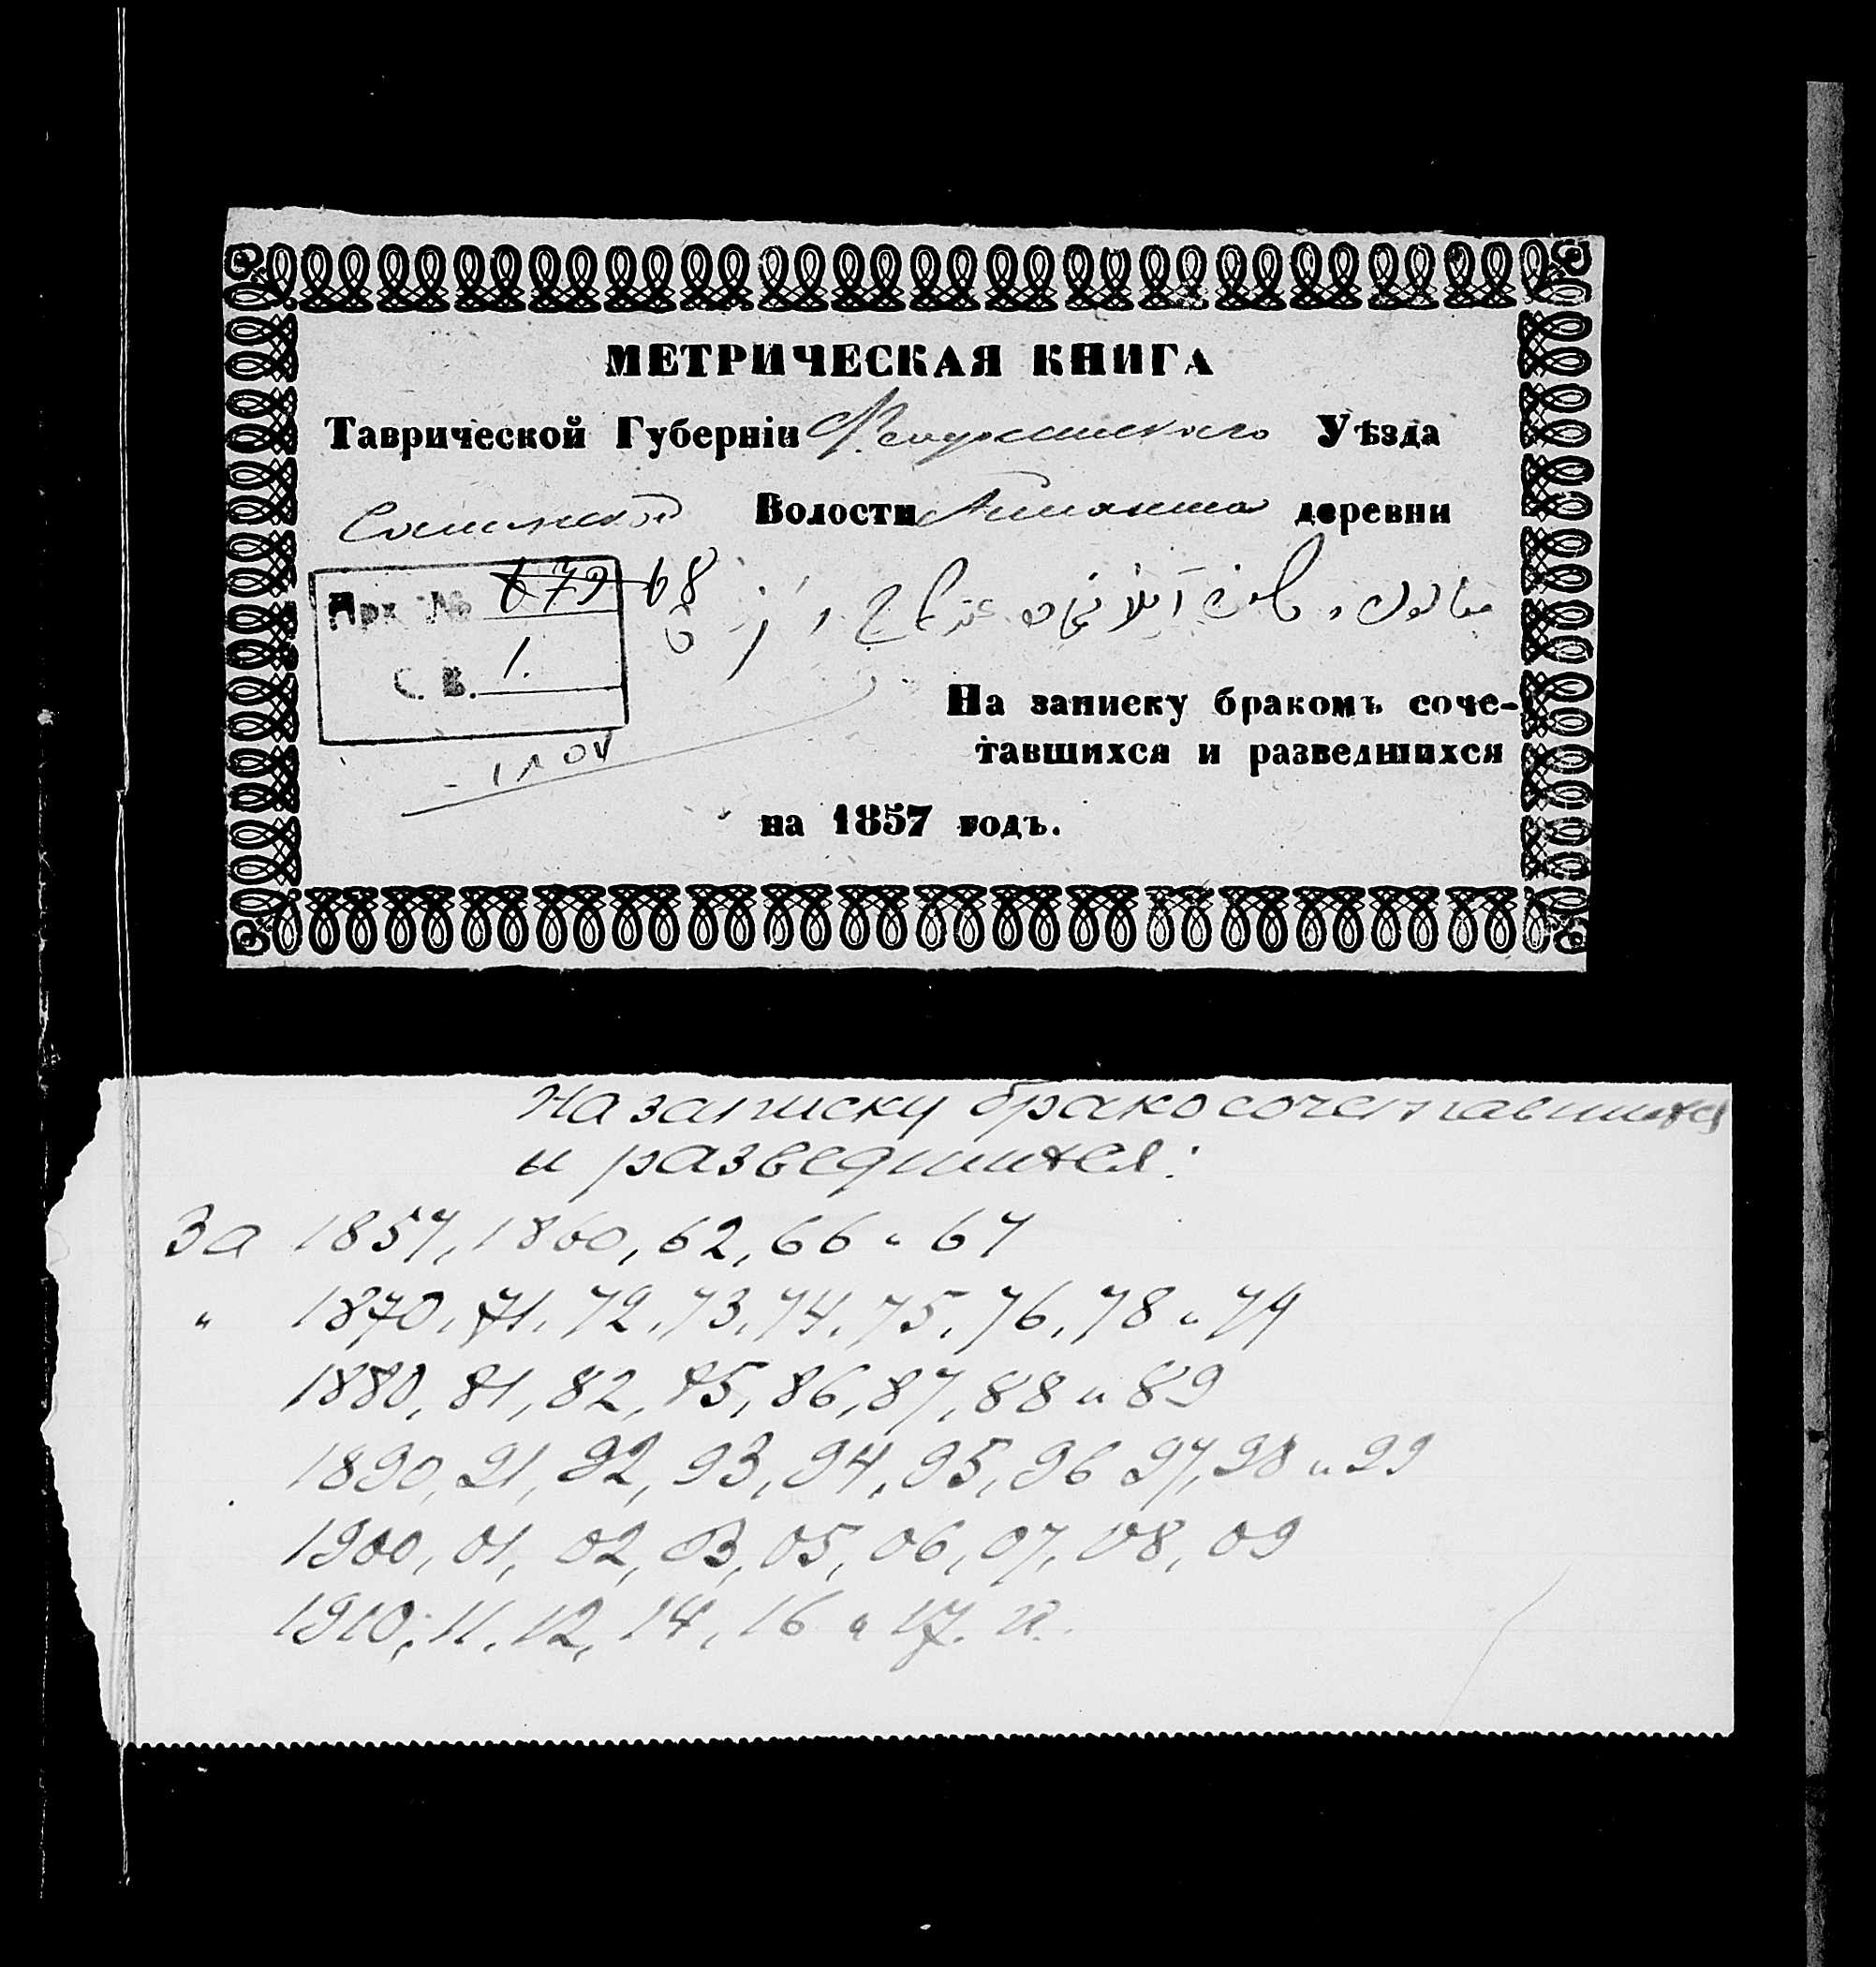 МЕТРИЧЕСКАЯ КНИГА
Таврической Губерніи Феодосійскаго Уѣзда
Волости деревни
Арх. № 679 68
С. В. 1.
١٨٥٧
На записку бракомъ соче-
тавшихся и разведшихся
на 1857 годъ.
На записку бракосочетавшихся
и разведшихся:
За 1857, 1860, 62, 66 и 67
" 1870, 71, 72, 73, 74, 75, 76, 78 и 79
1880, 81, 82, 85, 86, 87, 88 и 89
1890, 91, 92, 93, 94, 95, 96 97, 98 и 99
1900, 01, 02, 03, 05, 06, 07, 08, 09
1910, 11, 12, 14, 16 и 17. г.